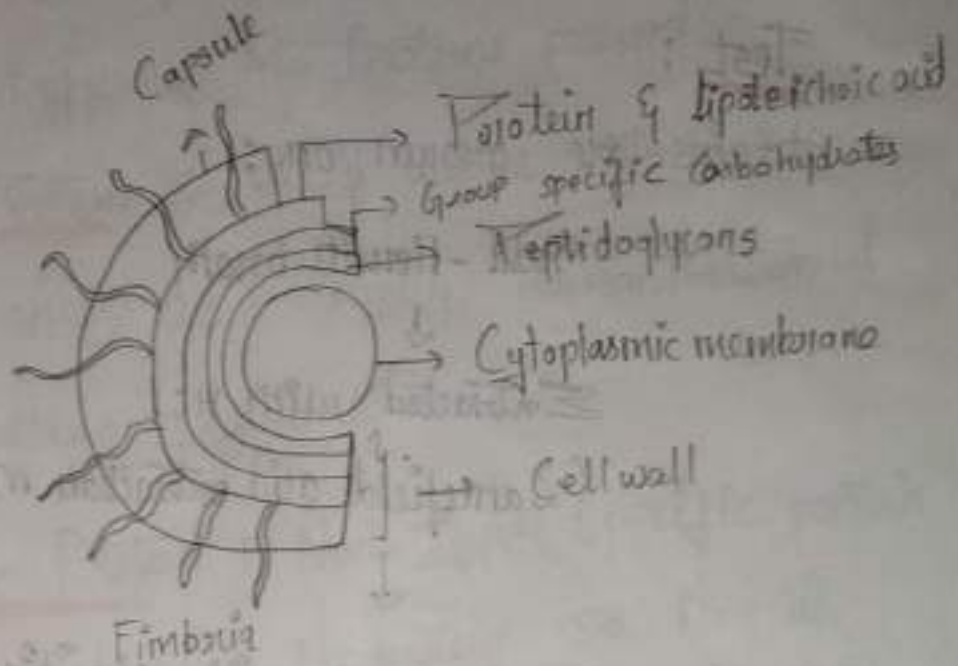 Capsule
Protein & Lipoteichoic acid
Group specific Carbohydrates
Peptidoglycans
Cytoplasmic membrane
Cell wall
Fimbria